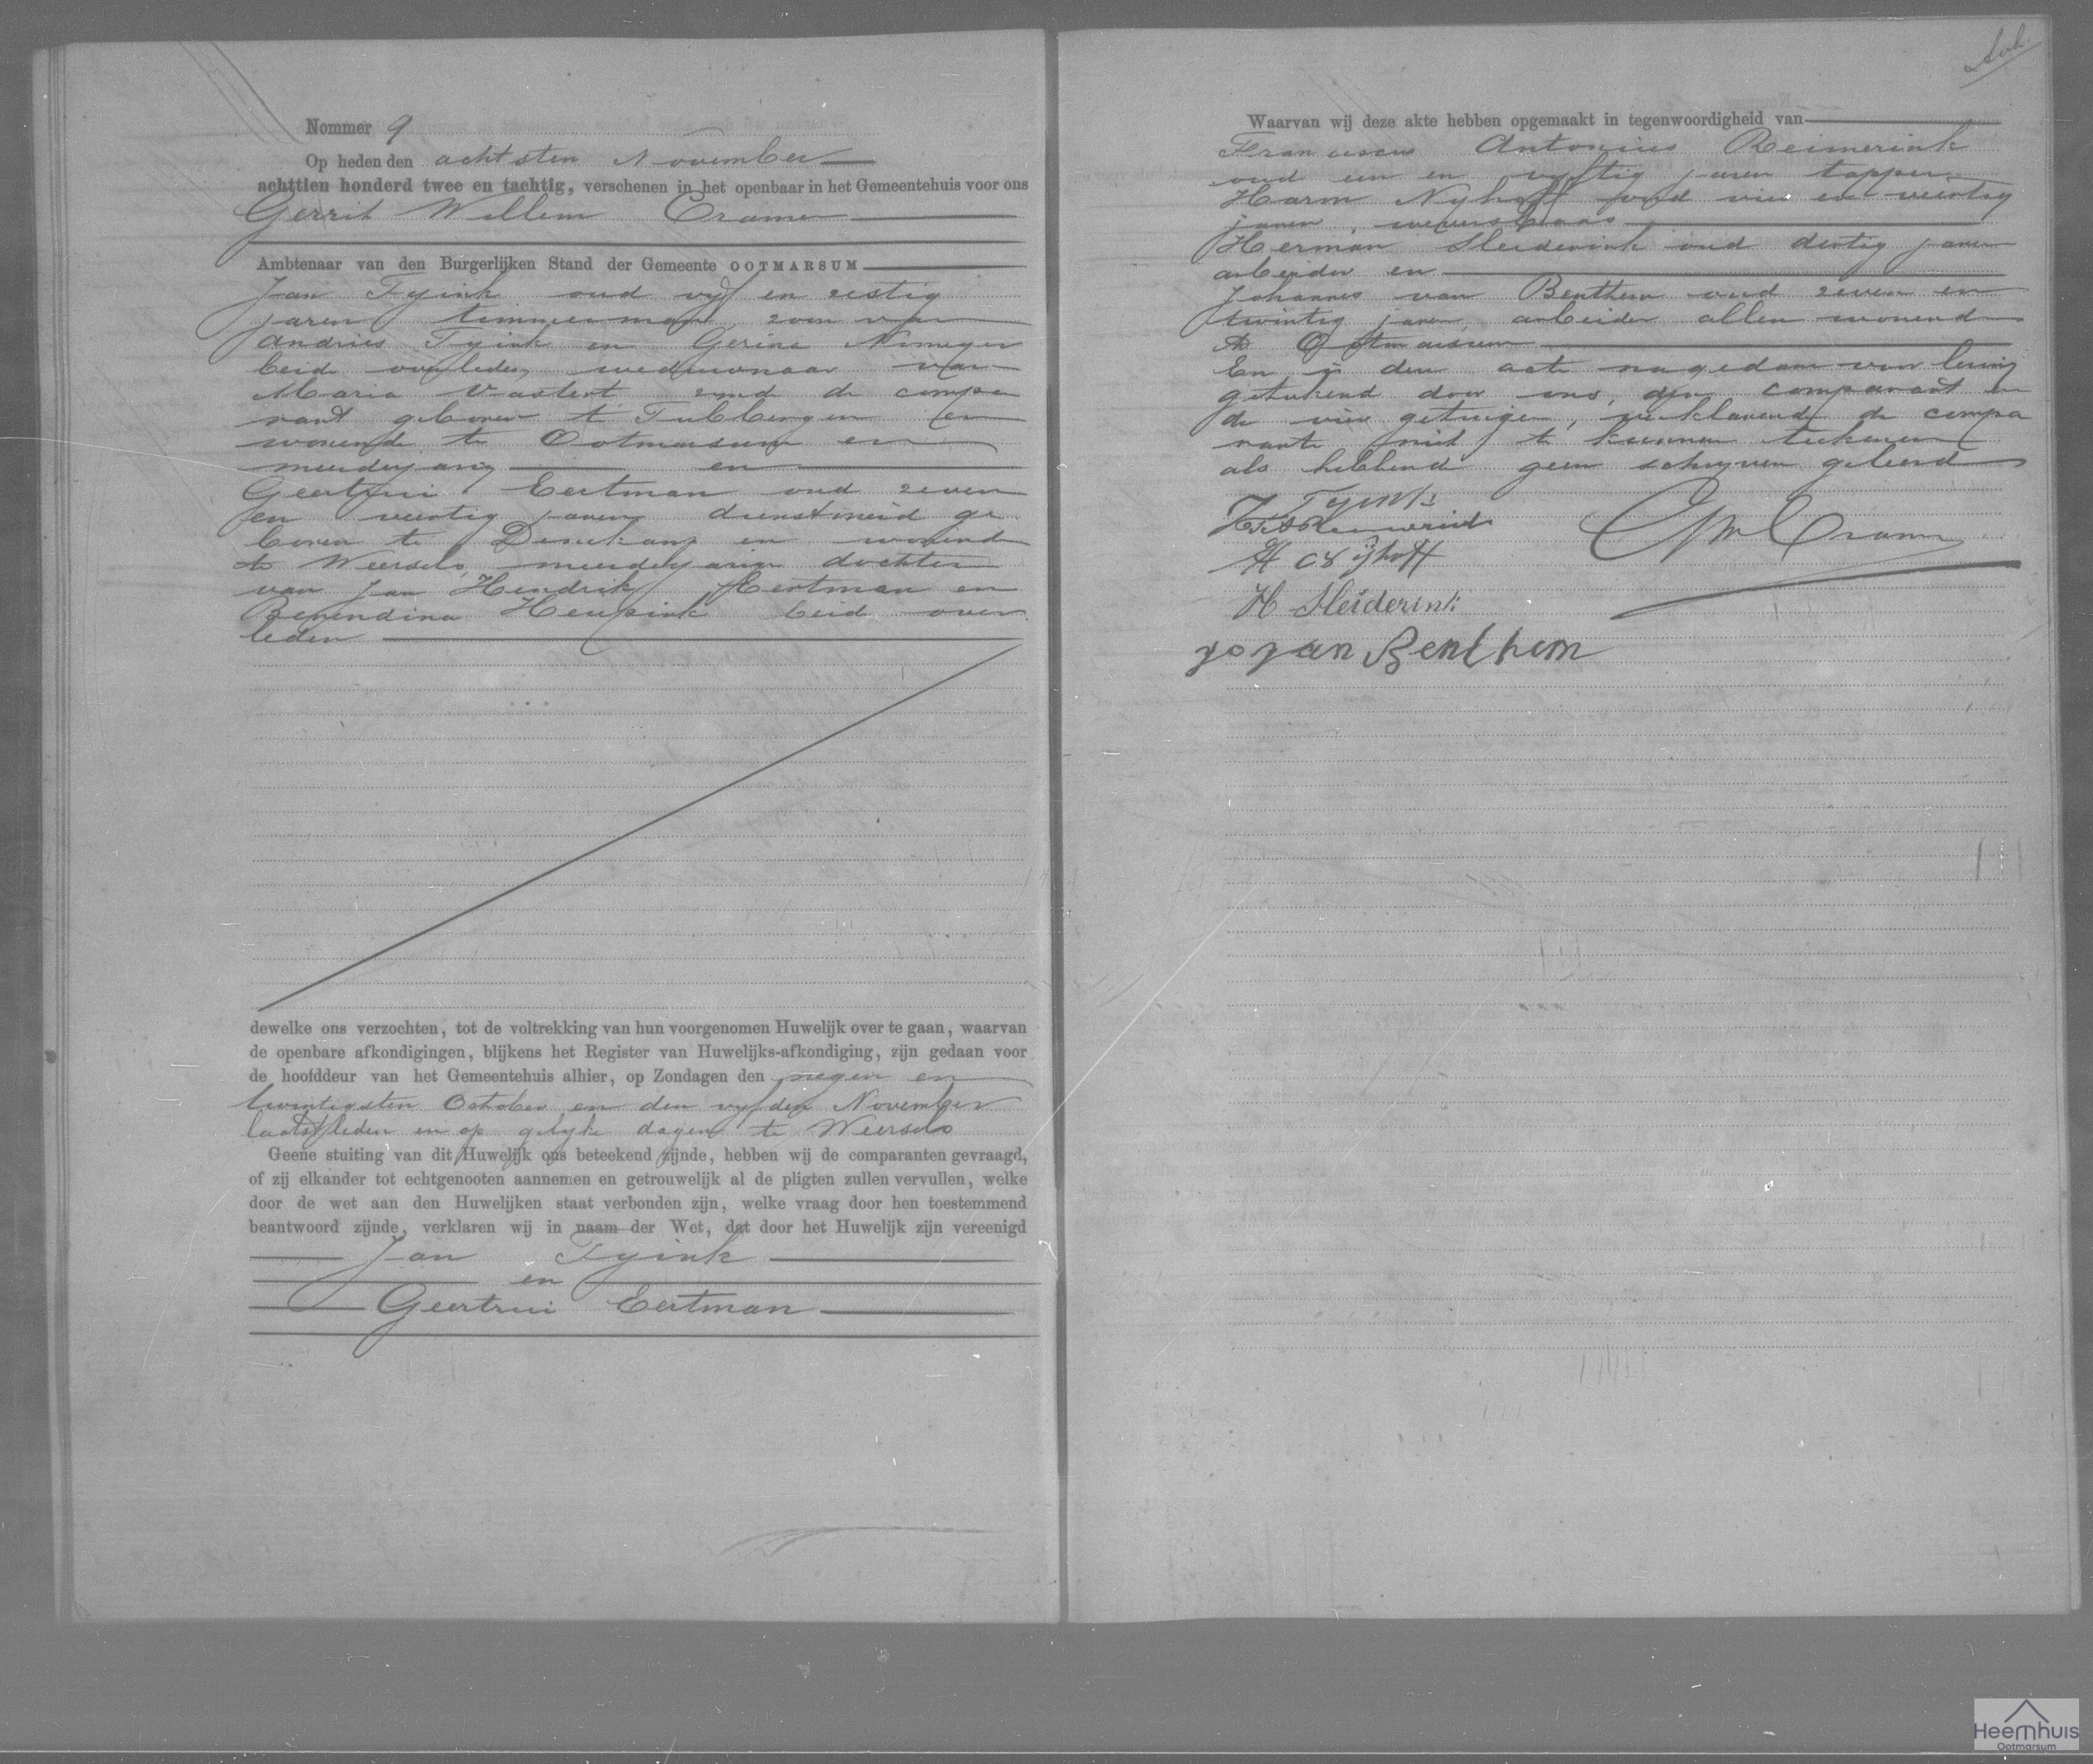 Nommer 9
Op heden den achtsten November
achttien honderd twee en tachtig, verschenen in het openbaar in het Gemeentehuis voor ons
Gerrit Willem Cramer
Ambtenaar van den Burgerlijken Stand der Gemeente OOTMARSUM
Jan Tyink oud vyf en zestig
jaren timmerman, zoon van
Andries Tyink en Gerina
beide overleden, weduwnaar van
Maria Vastert zynde de compa
rant geboren te Tubbergen en
wonende te Ootmarsum en
meerderjarig en
Geertrui Eertman oud zeven
en veertig jaren dienstmeid ge
boren te Denekamp en wonende
te Weerselo, meerderjarige dochter
van Jan Hendrik Eertman en
Berendina beide over
leden
dewelke ons verzochten, tot de voltrekking van hun voorgenomen Huwelijk over te gaan, waarvan
de openbare afkondigingen, blijkens het Register van Huwelijks-afkondiging, zijn gedaan voor
de hoofddeur van het Gemeentehuis alhier, op Zondagen den negen en
twintigsten October en den vyfden November
laatstleden en op gelyke dagen te Weerselo
Geene stuiting van dit Huwelijk ons beteekend zijnde, hebben wij de comparanten gevraagd,
of zij elkander tot echtgenooten aannemen en getrouwelijk al de pligten zullen vervullen, welke
door de wet aan den Huwelijken staat verbonden zijn, welke vraag door hen toestemmend
beantwoord zijnde, verklaren wij in naam der Wet, dat door het Huwelijk zijn vereenigd
Jan Tyink
en
Geertrui Eertman
Waarvan wij deze akte hebben opgemaakt in tegenwoordigheid van
Franciscus Antonius Reimerink
oud een en vyftig jaren tapper
Harm Nyhoff oud vier en veertig
jaren, weversbaas
Herman Sleiderink oud dertig jaren
arbeider en
Johannes van Benthem oud zeven en
twintig jaren, arbeider allen wonende
te Ootmarsum
En is deze acte na gedane voorlezing
geteekend door ons, den comparant en
de vier getuigen, verklarende de compa
rante niet te kunnen teekenen
als hebbende geen schryven geleerd
Tyink
H Nijhoff
GW Cramer
H Sleiderink
jo van Benthem
Heemhuis
Ootmarsum